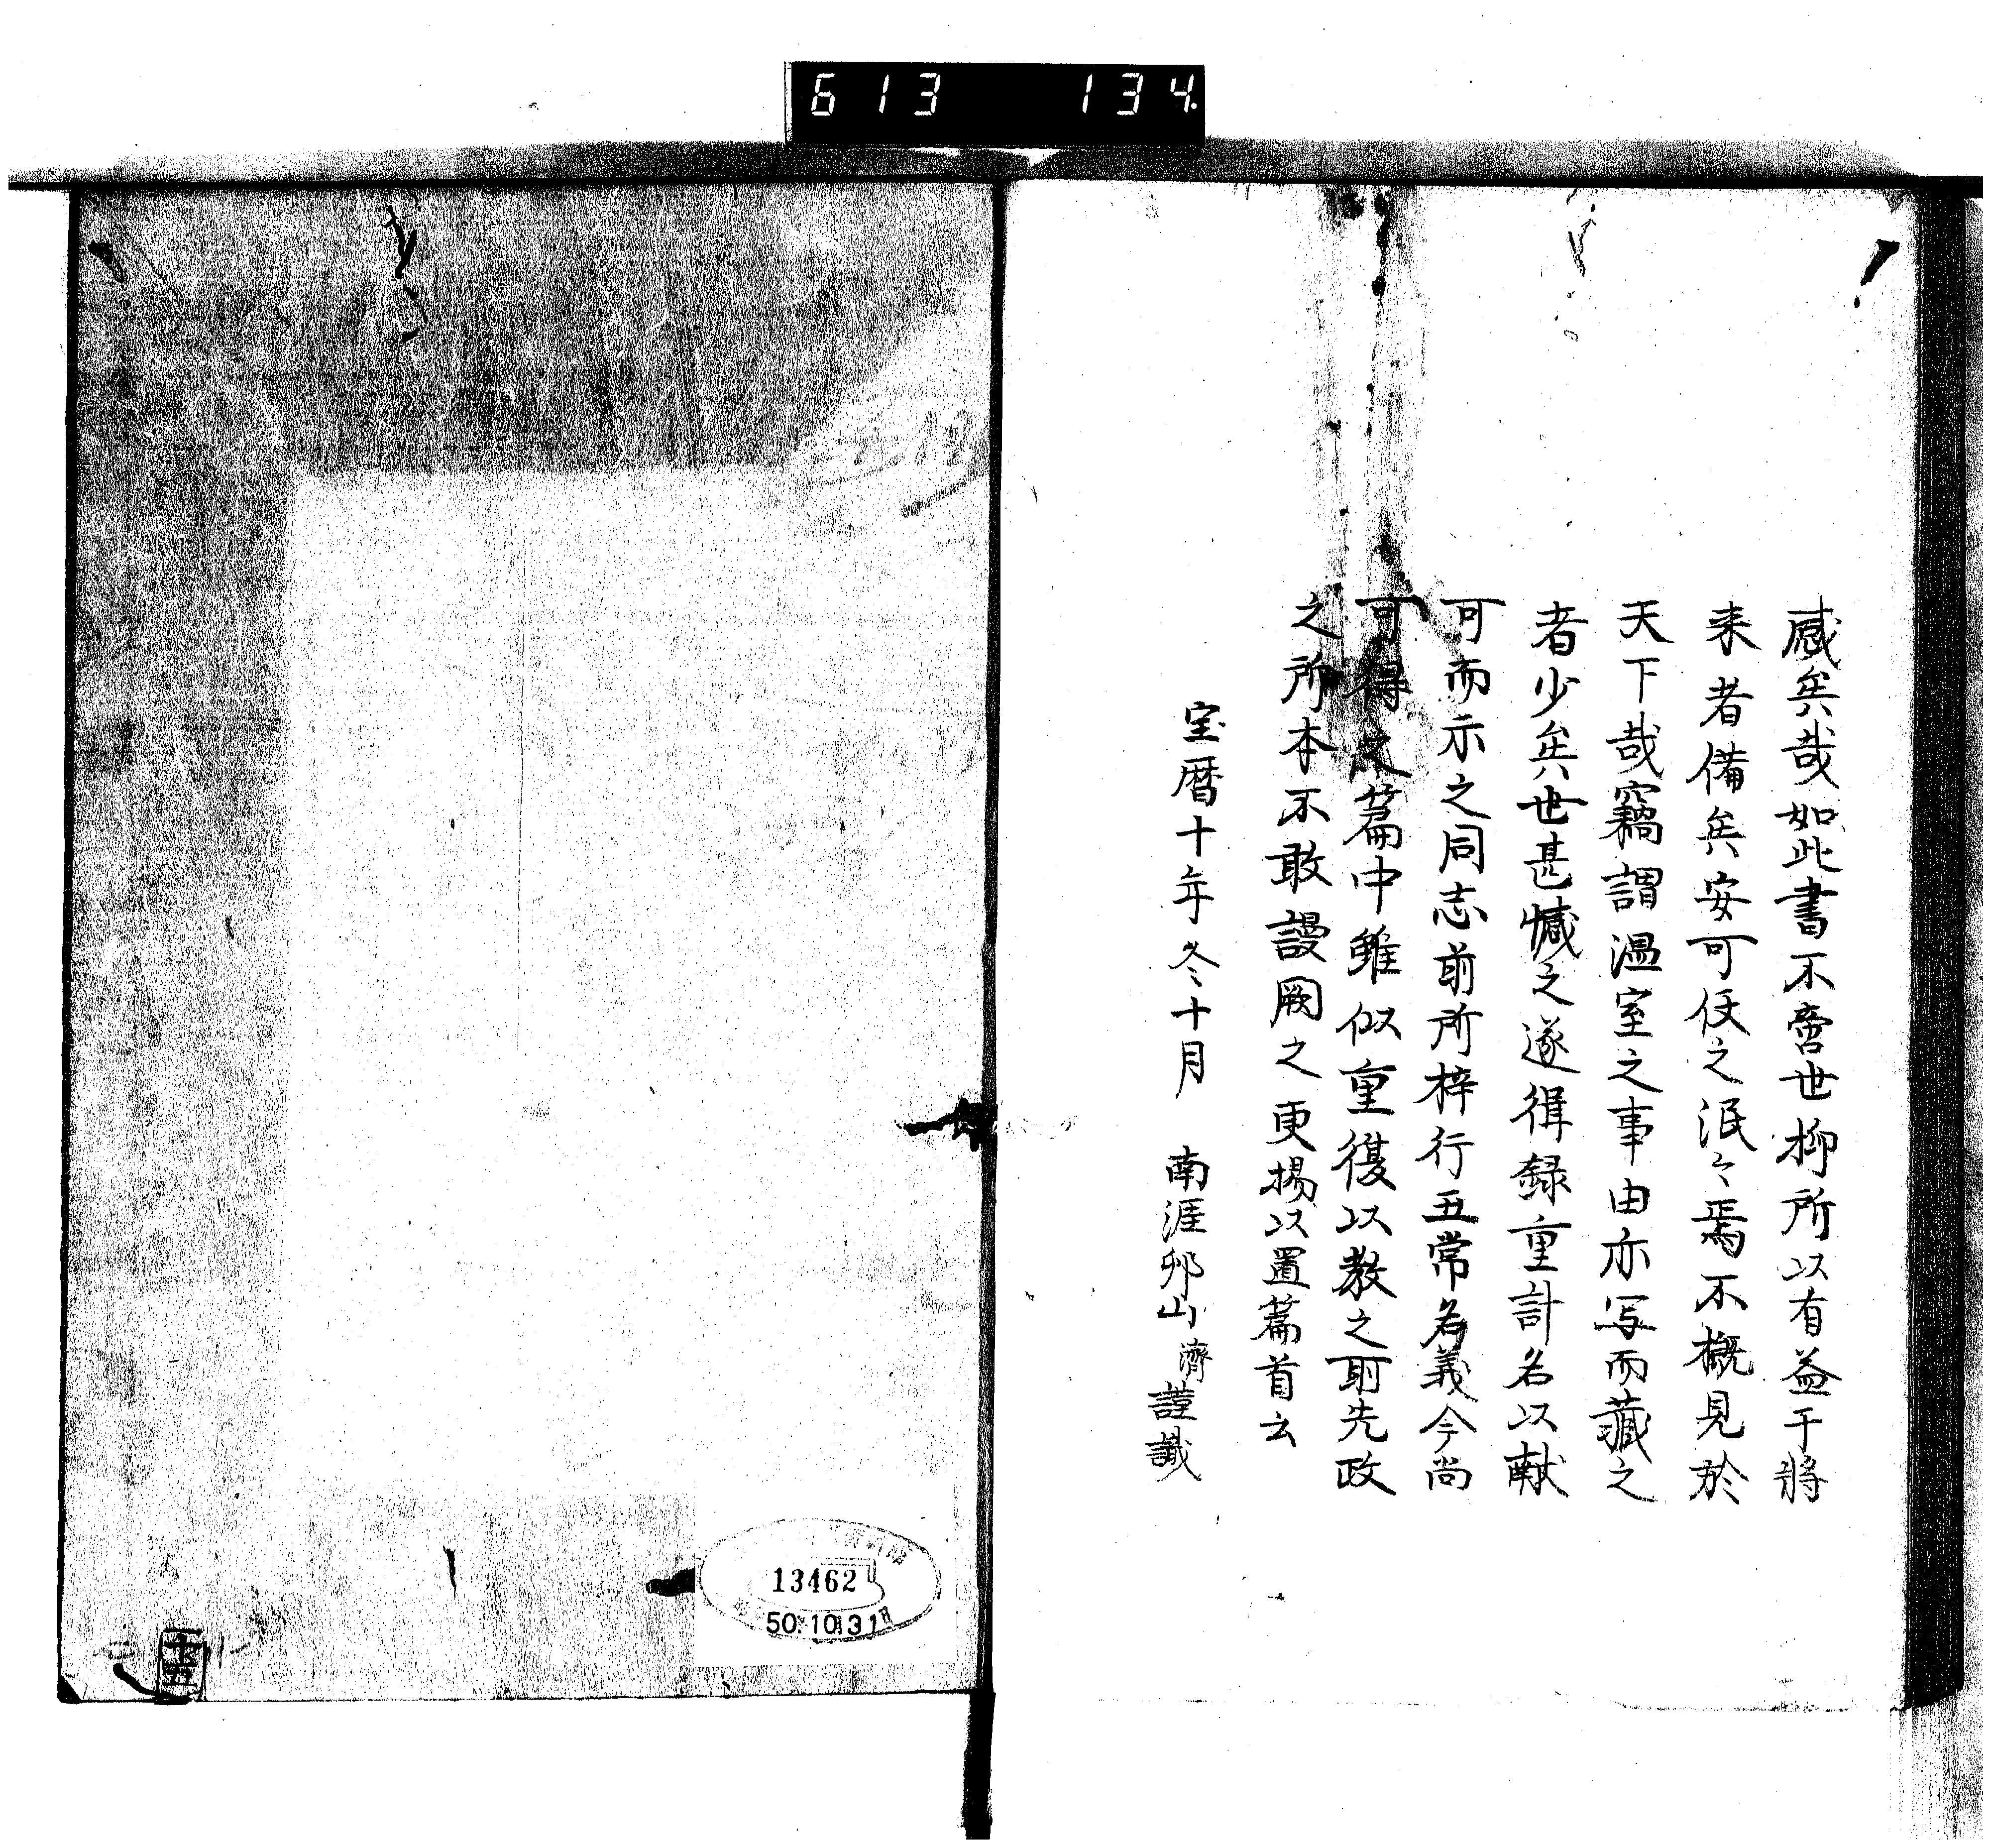 613 134.
感矣哉如此書不啻世抑所以有益于將
来者備矣安可任之泯〻焉不概見於
天下哉竊謂温室之事由亦写而藏之
者少矣世甚憾之遂緝録重計名以献
可而示之同志前所梓行五常名義今尚
可得之篇中雖似重復以教之所先政
之所本不敢謾闕之更揚以置篇首云
宝暦十年冬十月 南涯 山濟謹識
13462
50.10.31